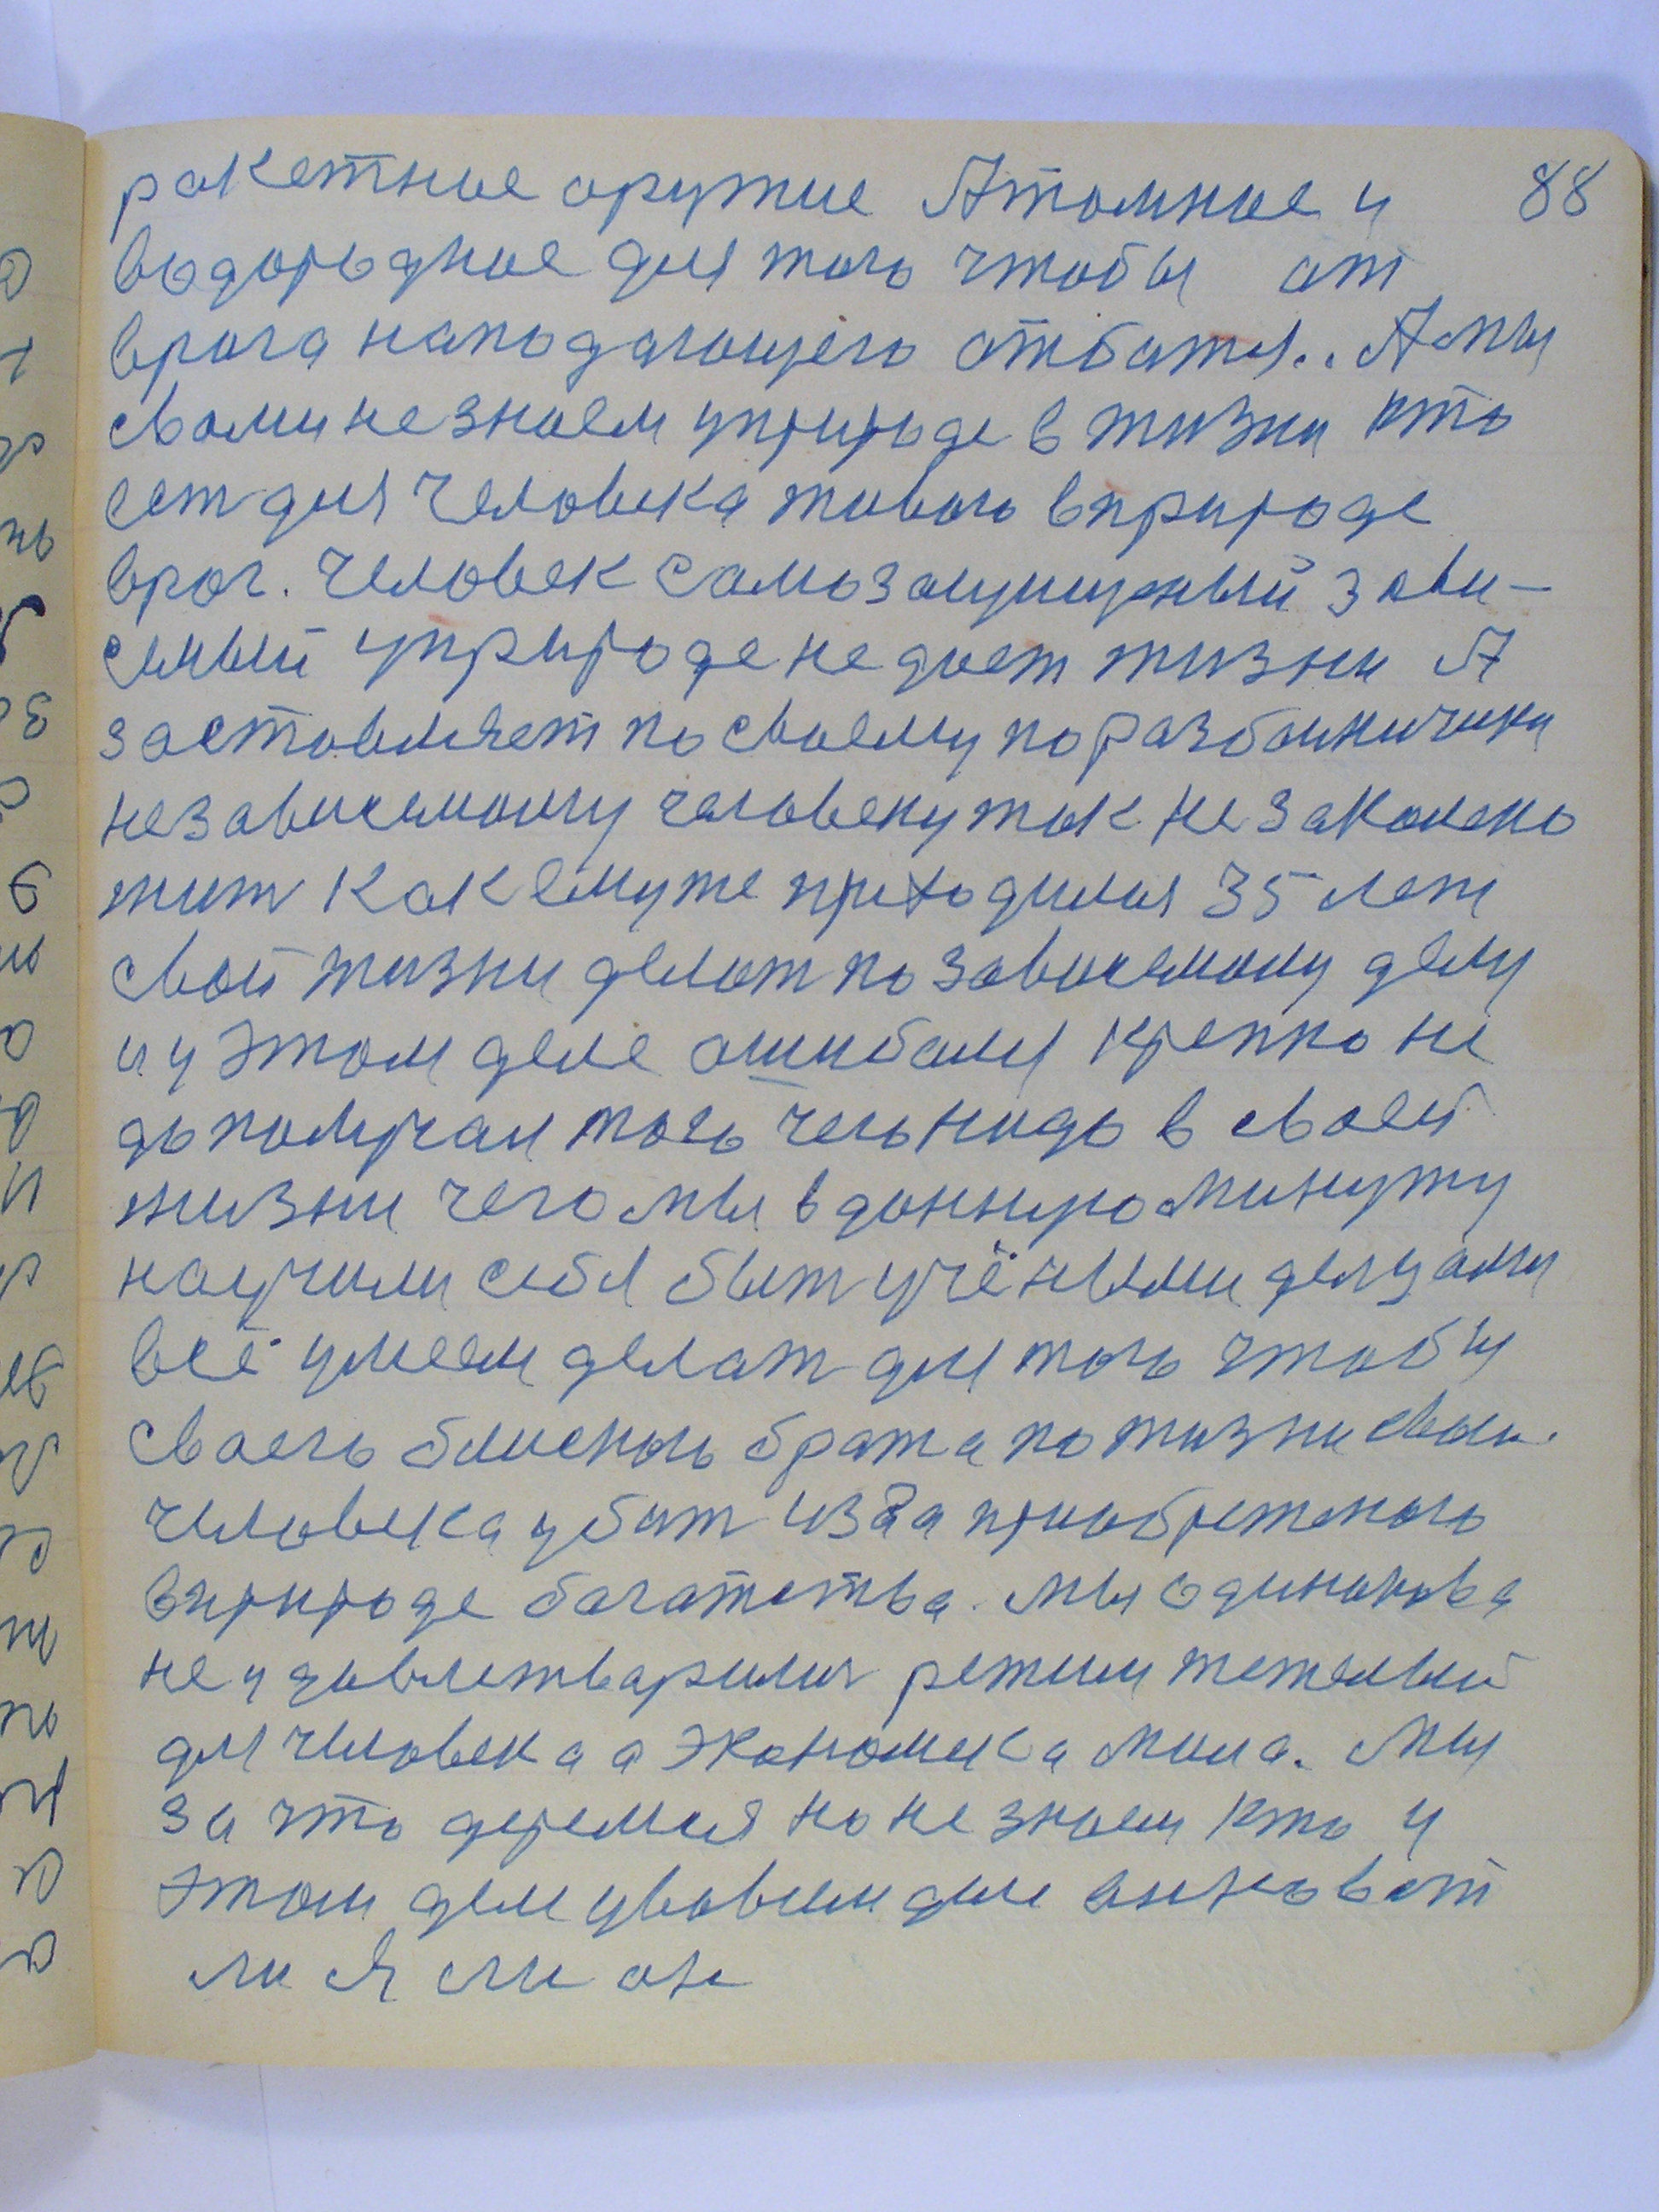 ракетное оружие Атомное и 88
водородное для того чтобы от
врага наподающего отбатя.. А мы
свами незнаем уприроде в жизни кто
ест для человека живого вприроде
враг. Человек самозащищуный зави-
семый уприроде не дает жизни А
заставляет по своему поразбойничики
независемому человеку так не законено
жит как ему же приходился 35 лет
свой жизни делат по зависемому делу
и у этом деле ошибался крепко не
дополучал того чего надо в своей
жизни чего мы в данную минуту
научили себя быт учёными делцами
всё умеем делат для того чтобы
своего блиского брата по жизни свои.
человека убит из за приобретеного
вприроде багатства. Мы одинакова
не удавлетварился режим тежелый
для человека а экономика мала. Мы
за что деремся но не знаем кто у
этом деле увовсем деле виноват
ли я ли он